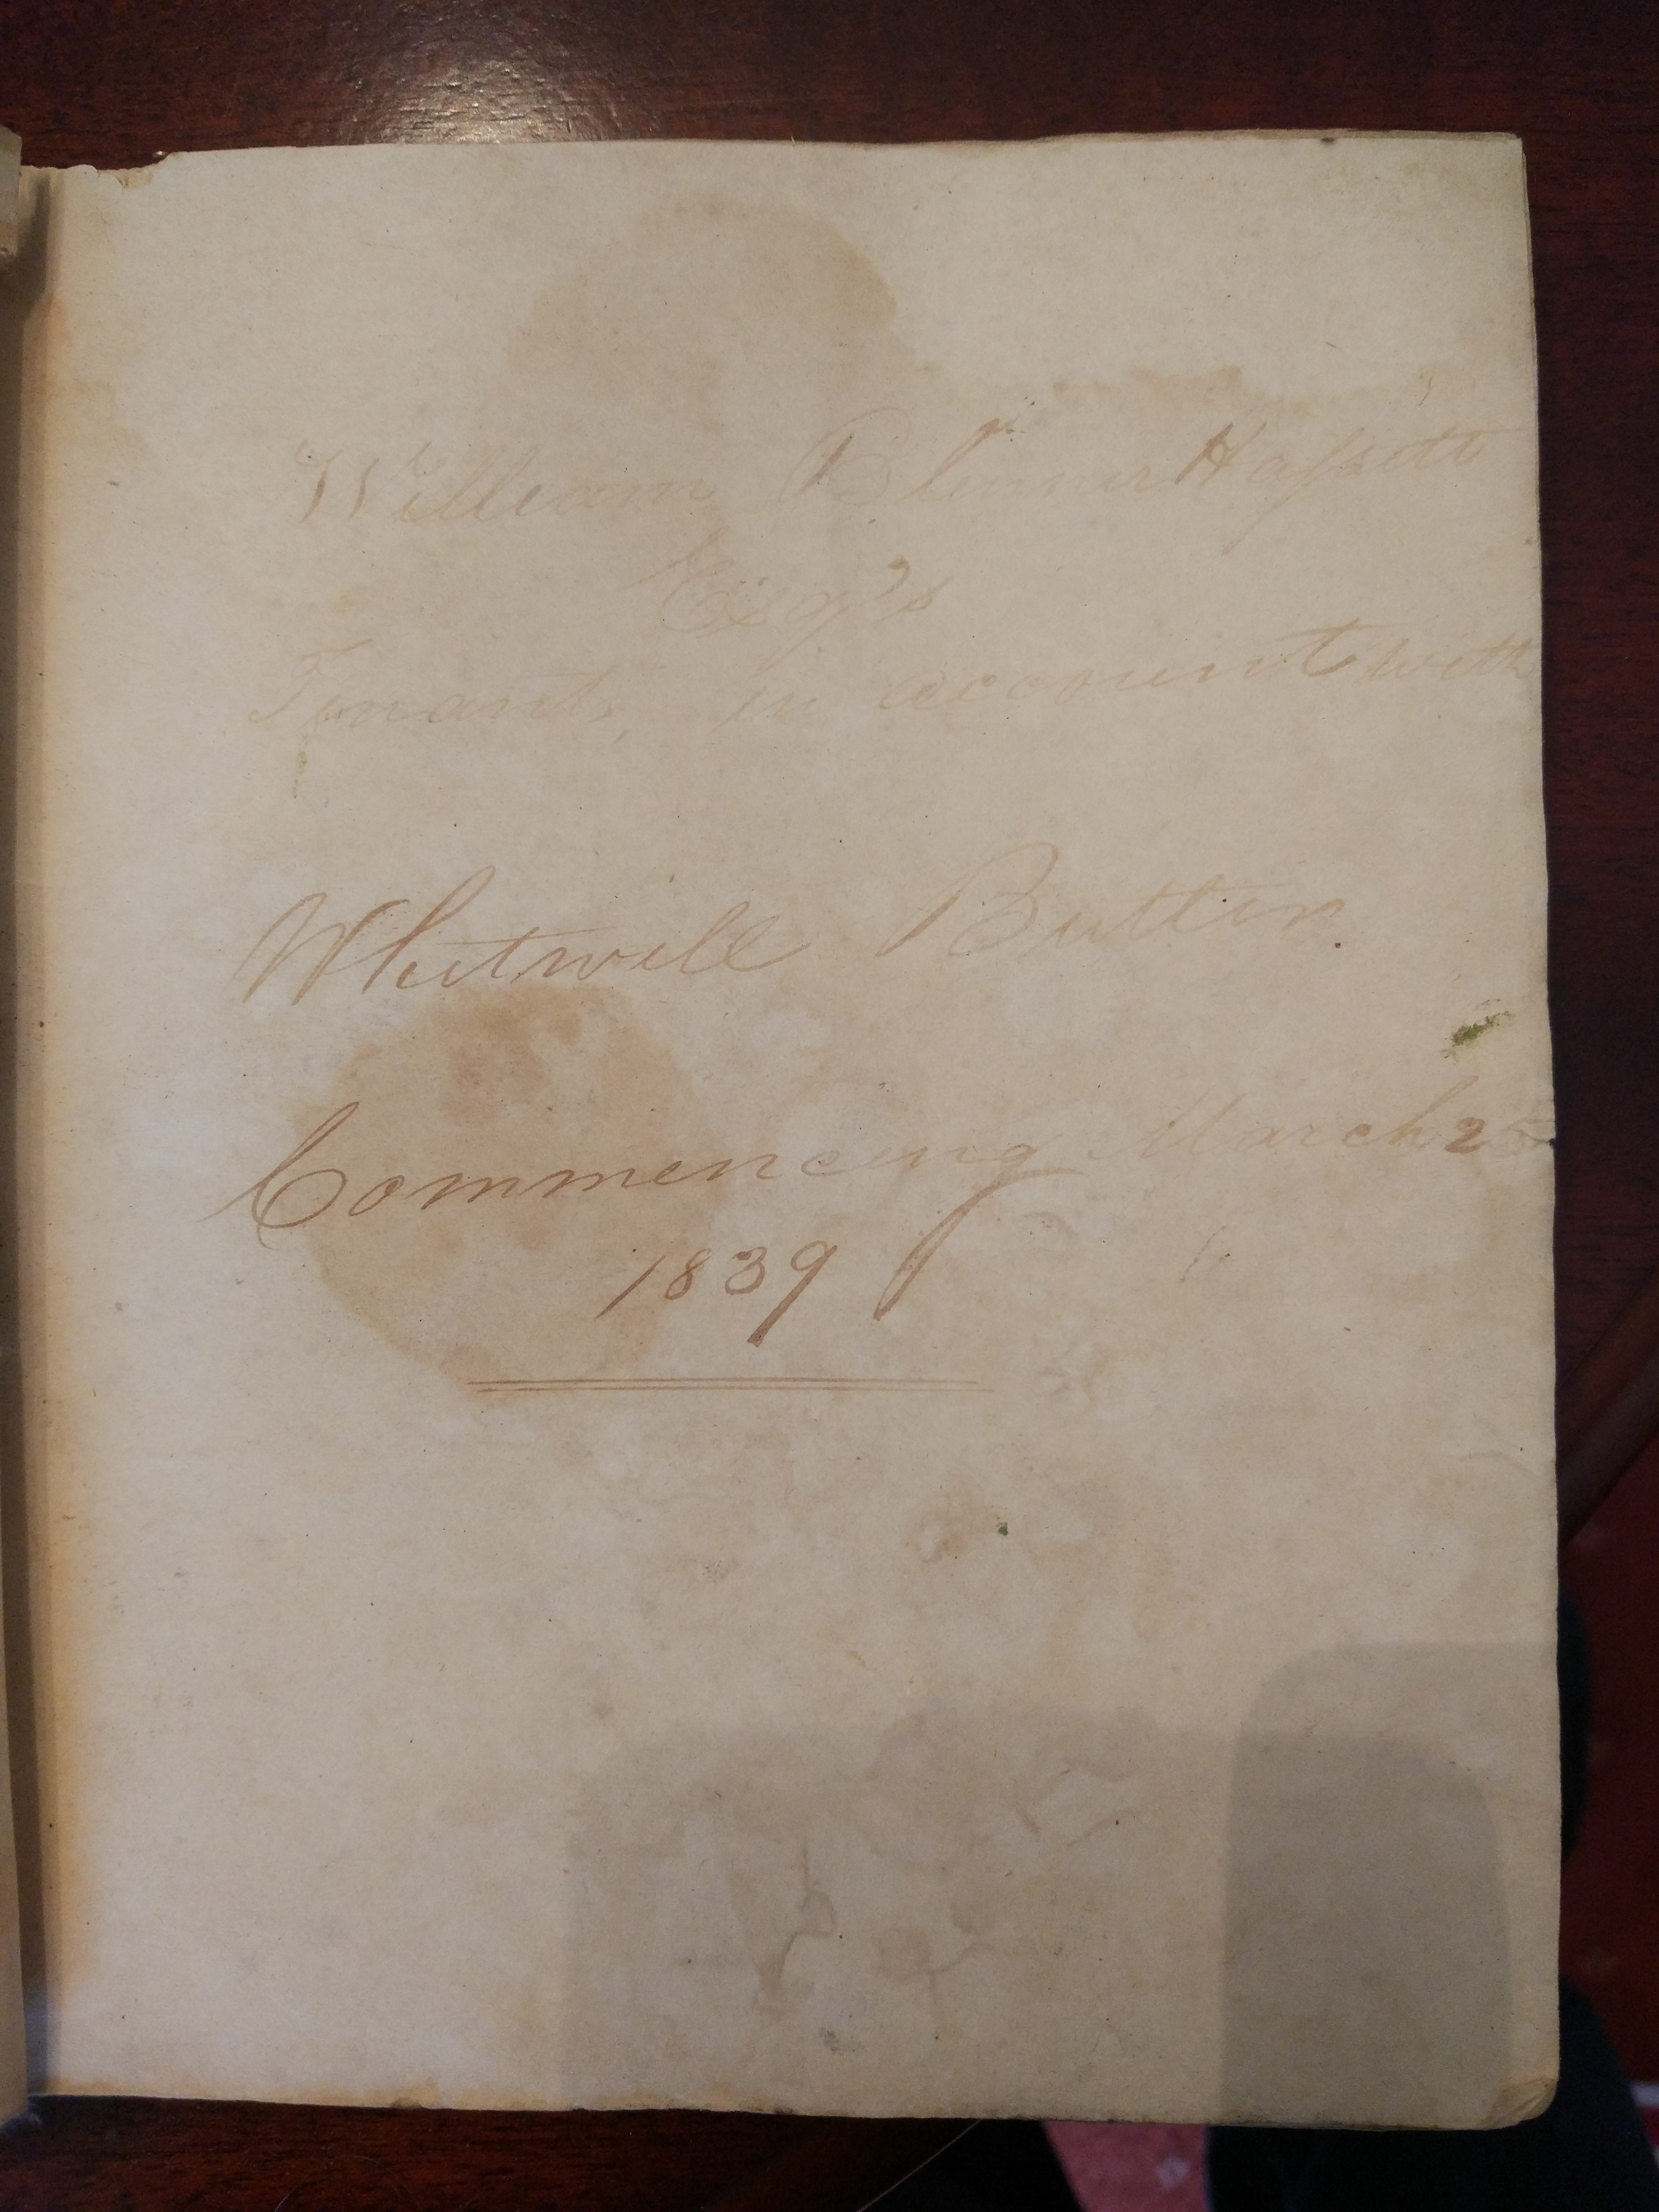 William BlennerHassett
Esqr's
Tenants, in account with
Whitwell Butler.
Commencing March 25
1839